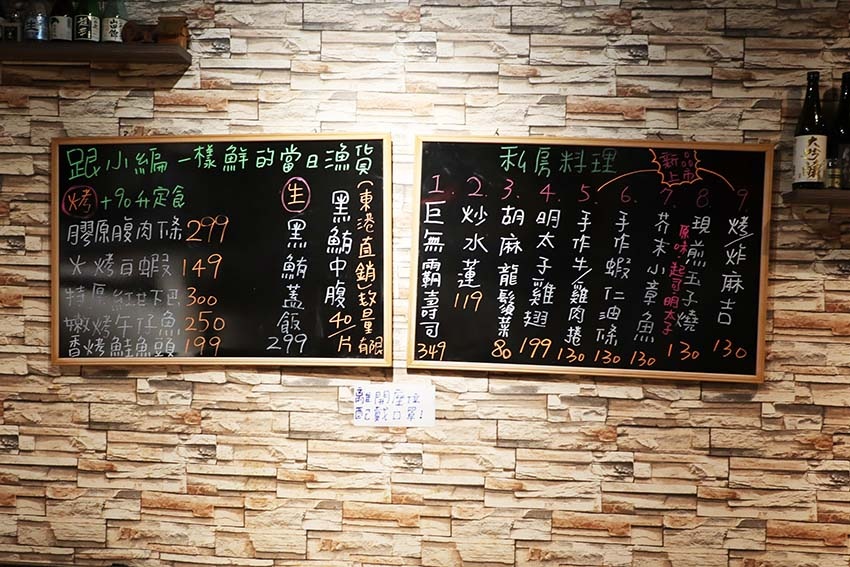 跟小編一樣鮮的當日漁貨
烤 +90升定食
膠原腹肉條 299
火烤白蝦 149
特厚紅甘下巴 300
嫩烤午仔魚 250
香烤鮭魚頭 199
生
黑鮪蓋飯 299
黑鮪中腹 40/片
(東港直銷)數量有限
私房料理
新品上市
1. 巨無霸壽司 349
2. 炒水蓮 119
3. 胡麻龍鬚菜 80
4. 明太子雞翅 199
5. 手作牛/雞肉捲 130
6. 手作蝦仁油條 130
7. 芥末小章魚 130
8. 現煎玉子燒 130
原味.起司.明太子
9 烤/炸麻吉 130
離開座位
配戴口罩!
大吟釀